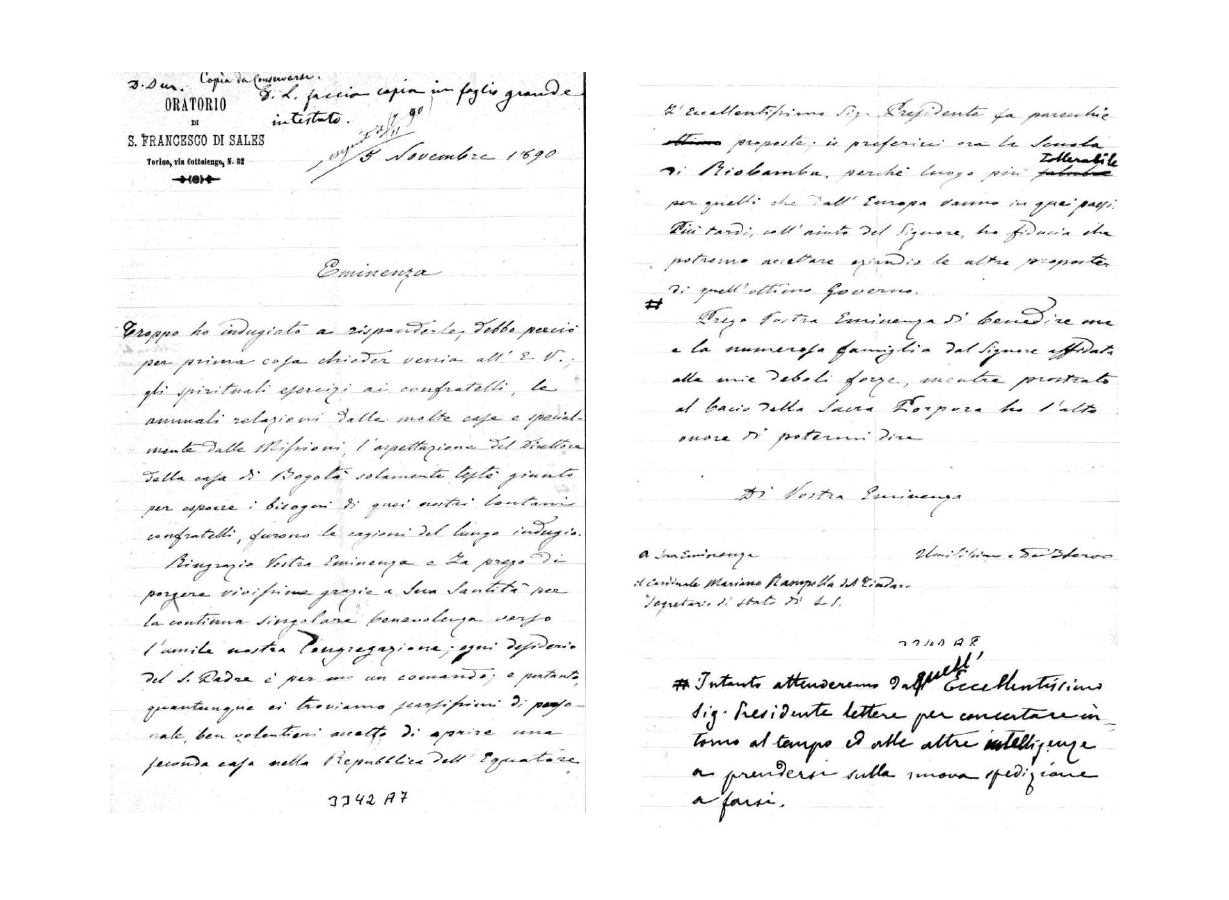 D. Dur. Copia da Conservarsi.
D. L. faccia copia in foglio grande
intestato.
ORATORIO
DI
S. FRANCESCO DI SALES
Torino, via Cottolengo, N. 32
5 Novembre 1890
Eminenza
Troppo ho indugiato a risponderle, debbo perciò
per prima cosa chieder venia all' E. V.;
gli spirituali esercizi ai confratelli, le
annuali relazioni dalle molte case e special-
mente dalle Missioni, l'aspettazione del Direttore
della casa di Bogotà solamente testè giunto
per esporre i bisogni di quei nostri lontani
confratelli, furono le cagioni del lungo indugio.
Ringrazio Vostra Eminenza e La prego di
porgere vivissime grazie a Sua Santità per
la continua singolare benevolenza verso
l'umile nostra Congregazione; ogni desiderio
del S. Padre è per me un comando; e pertanto,
quantunque ci troviamo scarsissimi di perso-
nale, ben volentieri accetto di aprire una
seconda casa nella Repubblica dell' Equatore
3342 A7
L'Eccellentissimo Sig. Presidente fa parecchie
ottime proposte; io preferirei ora la Scuola
Tollerabile
di Riobamba, perchè luogo più salubre
per quelli che dall' Europa vanno in quei paesi.
Più tardi, coll' aiuto del Signore, ho fiducia che
potremo accettare eziandio le altre proposte
di quell' ottimo Governo.
#
Prego Vostra Eminenza di benedire me
e la numerosa famiglia dal Signore affidata
alle mie deboli forze, mentre prostrato
al bacio della Sacra Porpora ho l'alto
onore di potermi dire
Di Vostra Eminenza
A Sua Eminenza
Umilissimo e Dev. Servo
il Cardinale Mariano Rampolla del Tindaro
Segretario di Stato di S. S.
3340 A8
quell'
# Intanto attenderemo dall' Eccellentissimo
Sig. Presidente lettere per concertare in-
torno al tempo ed alle altre intelligenze
a prendersi sulla nuova spedizione
a farsi.